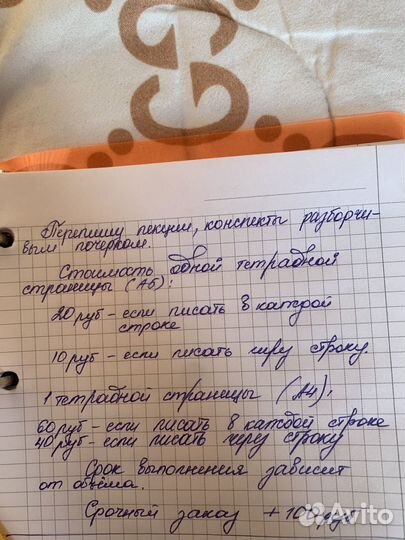 Перепишу лекции, конспекты разборчи-
вым почерком.
Стоимость одной тетрадной
страницы (А5):
20 руб - если писать в каждой
строке
10 руб - если писать через строку.
1 тетрадной страницы (А4):
60 руб - если писать в каждой строке
40 руб - если писать через строку
Срок выполнения зависит
от объёма.
Срочный заказ + 100 руб
Avito